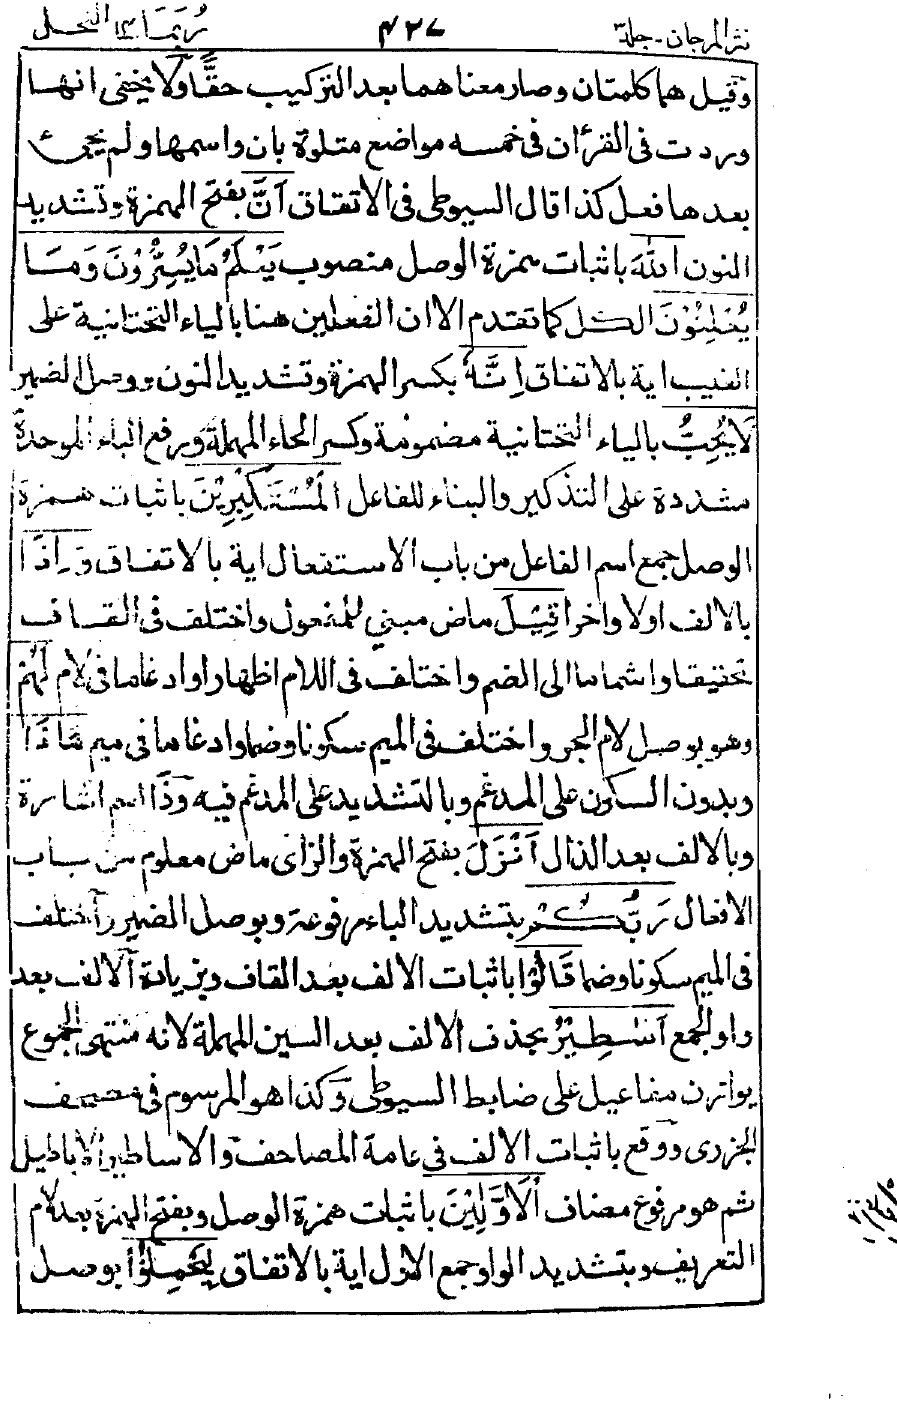 نثر المرجان - جلد ٣ ٤٢٧ ربما ١٤ النحل
وقيل هما كلمتان وصار معناهما بعد التركيب حقًّا ولا يخفى انها
وردت فى القرءان فى خمسه مواضع متلوة بان واسمها ولم يجئ
بعدها فعل كذا قال السيوطى فى الاتقان اَنَّ بفتح الهمزة وتشديد
النون اللهَ باثبات همزة الوصل منصوب يَعْلَمُ مَا يُسِرُّوْنَ وَمَا
يُعْلِنُوْنَ الكل كما تقدم الا ان الفعلين هنا بالياء التحتانية على
الغيب اية بالاتفاق اِنَّهُ بكسر الهمزة وتشديد النون ووصل الضمير
لَا يُحِبُّ بالياء التحتانية مضمومة وكسر الحاء المهملة ورفع الباء الموحدة
مشددة على التذكير والبناء للفاعل الْمُسْتَكْبِرِيْنَ باثبات همزة
الوصل جمع اسم الفاعل من باب الاستفعال اية بالاتفاق وَاِذَا
بالالف اولا واخرا قِيْلَ ماض مبني للمفعول واختلف فى القاف
تحقيقا واشماما الى الضم واختلف فى اللام اظهارا وادغاما فى لام لَهُمْ
وهو بوصل لام الجر واختلف فى الميم سكونا وضما وادغاما فى ميم مَّاذَا
وبدون السكون على المدغم وبالتشديد على المدغم فيه وَذَا اسم اشارة
وبالالف بعد الذال اَنْزَلَ بفتح الهمزة والزاى ماض معلوم من باب
الافعال رَبُّكُمْ بتشديد الباء مرفوعة وبوصل الضمير واختلف
فى الميم سكونا وضما قَالُوْا باثبات الالف بعد القاف وبزيادة الالف بعد
واو الجمع اَسَاطِيْرُ بحذف الالف بعد السين المهملة لانه منتهى الجموع
يوازن مفاعيل على ضابط السيوطى وكذا هو المرسوم فى مصحف
الجزرى ووقع باثبات الالف فى عامة المصاحف والاساطير الاباطيل
ثم هو مرفوع مضاف الْاَوَّلِيْنَ باثبات همزة الوصل وبفتح الهمزة بعد لام
التعريف وبتشديد الواو جمع الاول اية بالاتفاق لِيَحْمِلُوْا بوصل